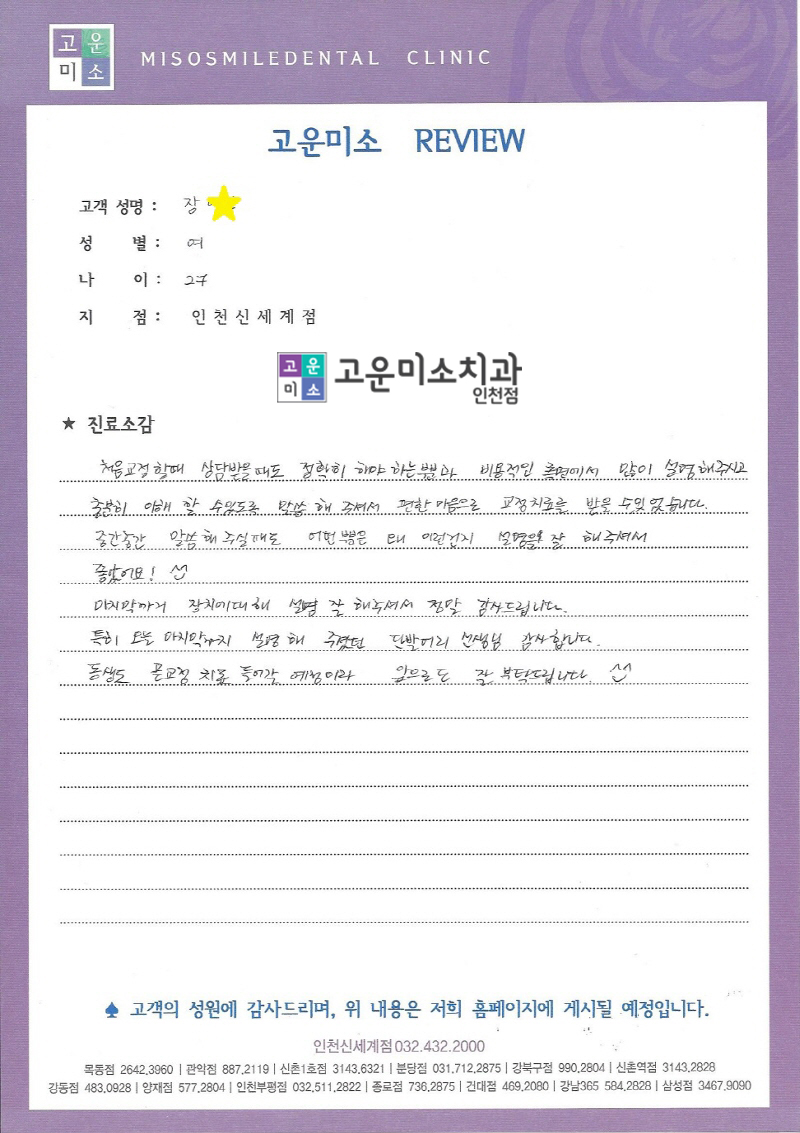 고운
미소
MISOSMILEDENTAL CLINIC
고운미소 REVIEW
고객 성명 : 장
성 별 : 여
나 이 : 27
지 점 : 인천신세계점
고운
미소
고운미소치과
인천점
★ 진료소감
처음교정할때 상담받을때도 정확히 해야 하는부분과 비용적인 측면에서 많이 설명해주시고
충분히 이해 할 수있도록 말씀 해 주셔서 편한마음으로 교정치료를 받을 수있었습니다.
중간중간 말씀해주실때도 어떤부분은 왜 이런건지 설명을 잘 해주셔서
좋았어요! ^^
마지막까지 장치에대해 설명 잘 해주셔서 정말 감사드립니다.
특히 오늘 마지막까지 설명해 주셨던 단발머리 선생님 감사합니다.
동생도 곧교정 치료 들어갈 예정이라 앞으로도 잘 부탁드립니다. ^^
♠ 고객의 성원에 감사드리며, 위 내용은 저희 홈페이지에 게시될 예정입니다.
인천신세계점032.432.2000
목동점 2642.3960 | 관악점 887.2119 | 신촌1호점 3143.6321 | 분당점 031.712.2875 | 강북구점 990.2804 | 신촌역점 3143.2828
강동점 483.0928 | 양재점 577.2804 | 인천부평점 032.511.2822 | 종로점 736.2875 | 건대점 469.2080 | 강남365 584.2828 | 삼성점 3467.9090